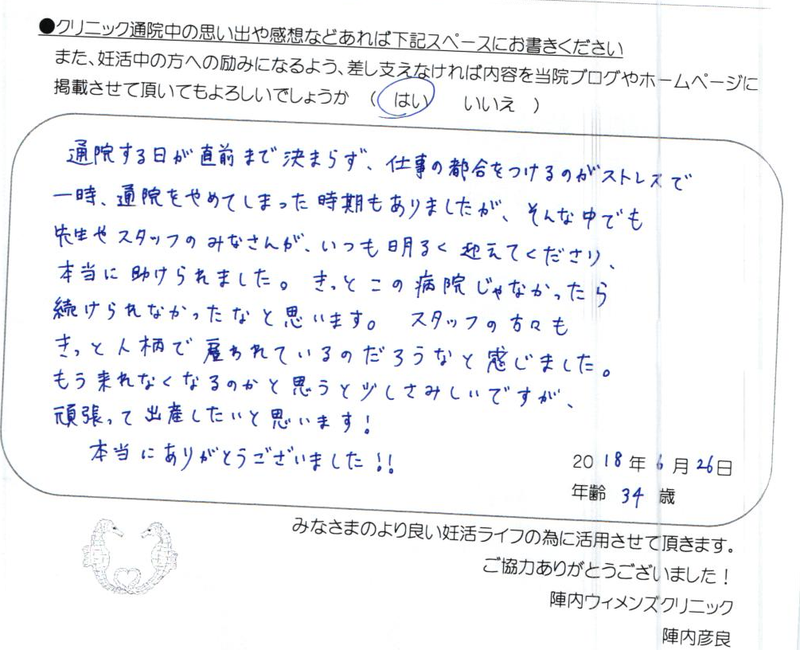 ●クリニック通院中の思い出や感想などあれば下記スペースにお書きください
また、妊活中の方への励みになるよう、差し支えなければ内容を当院ブログやホームページに
掲載させて頂いてもよろしいでしょうか （ はい いいえ ）
通院する日が直前まで決まらず、仕事の都合をつけるのがストレスで
一時、通院をやめてしまった時期もありましたが、そんな中でも
先生やスタッフのみなさんが、いつも明るく迎えてくださり、
本当に助けられました。きっとこの病院じゃなかったら
続けられなかったなと思います。 スタッフの方々も
きっと人柄で雇われているのだろうなと感じました。
もう来れなくなるのかと思うと少しさみしいですが、
頑張って出産したいと思います！
本当にありがとうございました!!
2018年 6月26日
年齢 34 歳
みなさまのより良い妊活ライフの為に活用させて頂きます。
ご協力ありがとうございました！
陣内ウィメンズクリニック
陣内彦良